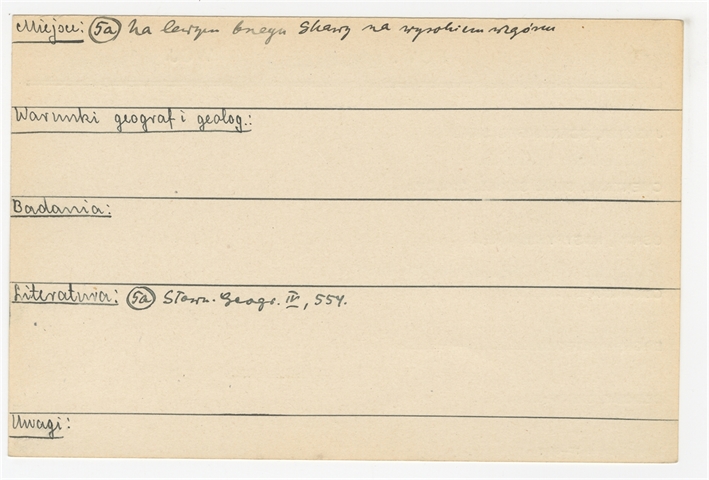 Miejsce: 5a Na lewym brzegu Skawy na wysokiem wzgórzu
Warunki geograf i geolog.:
Badania:
Literatura: 5a Słown. Geogr. IV, 554.
Uwagi: